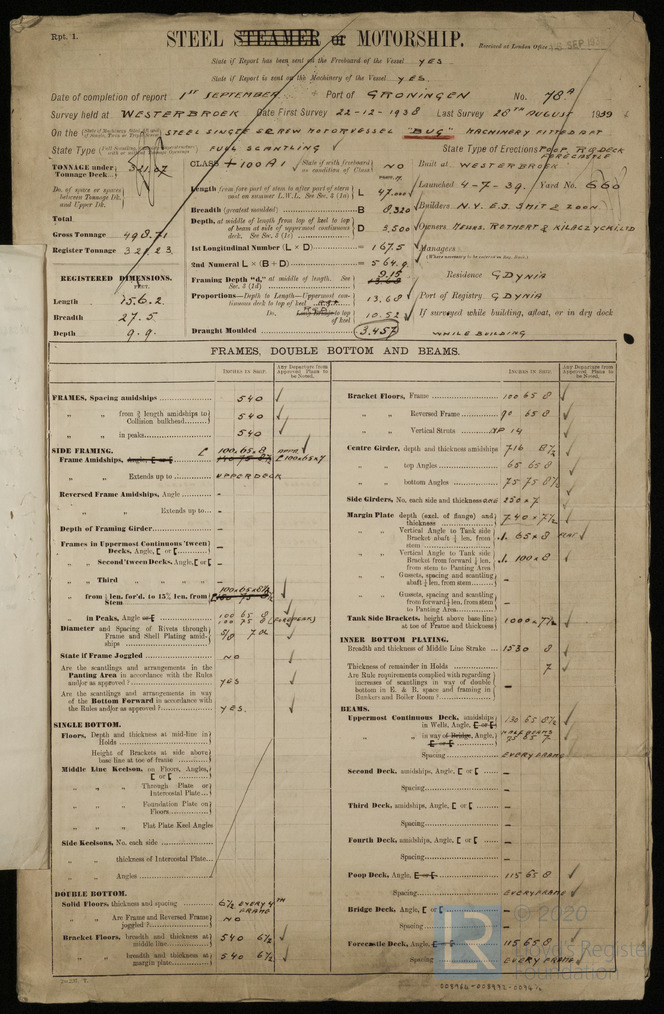 Rpt. 1.
STEEL STEAMER or MOTORSHIP.
Received at London Office SEP 1939
State if Report has been sent on the Freeboard of the Vessel YES
State if Report is sent on the Machinery of the Vessel YES.
Date of completion of report 1ST SEPTEMBER Port of GRONINGEN No. 78A
Survey held at WESTERBROEK Date First Survey 22-12-1938 Last Survey 28TH AUGUST 1939
On the STEEL SINGLE SCREW MOTORVESSEL "BUG" MACHINERY FITTED AFT
State Type FULL SCANTLING State Type of Erections POOP, R.Q.DECK FORECASTLE
TONNAGE under Tonnage Deck 321.07
CLASS +100A1 State if with freeboard as condition of Class NO
Built at WESTERBROEK
Do. of space or spaces between Tonnage Dk. and Upper Dk.
Length from fore part of stem to after part of stern post on summer L.W.L. See Sec. 3 (1a) L 47.000
Launched 4-7-39. Yard No. 660
Total
Breadth (greatest moulded) B 8.320
Builders N.V. E.J. SMIT & ZOON.
Gross Tonnage 498.71
Depth, at middle of length from top of keel to top of beam at side of uppermost continuous deck. See Sec. 3 (1c) D 3.500
Owners MESSRS. ROTHERT & KILACZYCKI LTD
Register Tonnage 321.23.
1st Longitudinal Number (L × D) = 167.5
Managers
2nd Numeral L × (B + D) = 564.9
REGISTERED DIMENSIONS.
FEET.
Framing Depth "d," at middle of length. See Sec. 3 (1d) 9.15
Residence GDYNIA
Length 156.2.
Proportions—Depth to Length—Uppermost continuous deck to top of keel 13.68
Port of Registry GDYNIA
Breadth 27.5
Do. to top of keel 10.52
If surveyed while building, afloat, or in dry dock
Depth 9.9.
Draught Moulded 3.457
WHILE BUILDING
FRAMES, DOUBLE BOTTOM AND BEAMS.
INCHES IN SHIP. Any Departure from Approved Plans to be Noted.
INCHES IN SHIP. Any Departure from Approved Plans to be Noted.
FRAMES, Spacing amidships 540
" " from ⅗ length amidships to Collision bulkhead 540
" " in peaks 540
SIDE FRAMING.
Frame Amidships, Angle, [ or [ 100.65×8
" " Extends up to UPPER DECK
Reversed Frame Amidships, Angle -
" " Extends up to -
Depth of Framing Girder -
Frames in Uppermost Continuous 'tween Decks, Angle, [ or [ -
" Second 'tween Decks, Angle, [ or [ -
" Third " " " -
" from ⅕ len. for'd. to 15% len. from Stem 100×65×6½
" in Peaks, Angle or [ 100 65 8 100 75 8 (FOREPEAK)
Diameter and Spacing of Rivets through Frame and Shell Plating amidships 5/8 7 DIA
State if Frame Joggled NO
Are the scantlings and arrangements in the Panting Area in accordance with the Rules and/or as approved? YES
Are the scantlings and arrangements in way of the Bottom Forward in accordance with the Rules and/or as approved? YES.
SINGLE BOTTOM.
Floors, Depth and thickness at mid-line in Holds
Height of Brackets at side above base line at toe of frame
Middle Line Keelson, on Floors, Angles, [ or [
" " " Through Plate or Intercostal Plate
" " " Foundation Plate on Floors
" " " Flat Plate Keel Angles
Side Keelsons, No. each side
" " thickness of Intercostal Plate
" " Angles
DOUBLE BOTTOM.
Solid Floors, thickness and spacing 6½ EVERY 4TH FRAME
" " Are Frame and Reversed Frame joggled? NO
Bracket Floors, breadth and thickness at middle line 540 6½
" " breadth and thickness at margin plate 540 6½
Bracket Floors, Frame 100 65 8
" " Reversed Frame 90 65 8
" " Vertical Struts NP 14
Centre Girder, depth and thickness amidships 716 8½
" " top Angles 65 65 8
" " bottom Angles 75 75 8½
Side Girders, No. each side and thickness ONE 250×7
Margin Plate depth (excl. of flange) and thickness 740×7½
" " Vertical Angle to Tank side Bracket abaft ¼ len. from stem 65×8
" " Vertical Angle to Tank side Bracket from forward ¼ len. from stem to Panting Area 100×8
" " Gussets, spacing and scantling abaft ¼ len. from stem -
" " Gussets, spacing and scantling from forward ¼ len. from stem to Panting Area -
Tank Side Brackets, height above base line at toe of Frame and thickness 1000×7½
INNER BOTTOM PLATING.
Breadth and thickness of Middle Line Strake 1530 8
Thickness of remainder in Holds 7
Are Rule requirements complied with regarding increases of scantlings in way of double bottom in E. & B. space and framing in Bunkers and Boiler Room? -
BEAMS.
Uppermost Continuous Deck, amidships in Wells, Angle, [ or [ 130 65 8½
" " in way of Bridge, Angle, [ or [ HALF BEAMS 75 65 7
Spacing EVERY FRAME
Second Deck, amidships, Angle, [ or [ -
Spacing -
Third Deck, amidships, Angle, [ or [ -
Spacing -
Fourth Deck, amidships, Angle, [ or [ -
Spacing -
Poop Deck, Angle, [ or [ 115 65 8
Spacing EVERY FRAME
Bridge Deck, Angle, [ or [ -
Spacing -
Forecastle Deck, Angle, [ or [ 115 65 8
Spacing EVERY FRAME
LR © 2020
Lloyd's Register
Foundation
008964-008992-0034